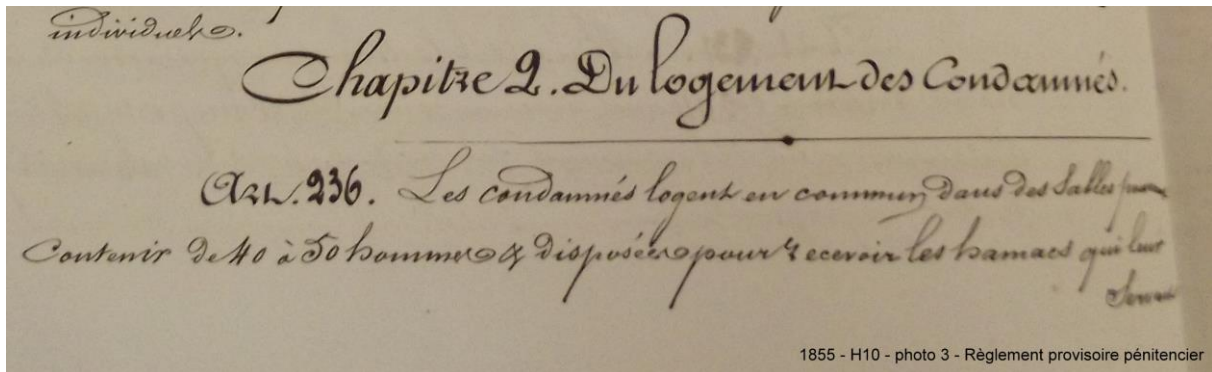 individuels.
Chapitre 2. Du logement des Condamnés.
Art. 236. Les condamnés logent en commun dans des Salles
Contenir de 40 à 50 hommes & disposées pour recevoir les hamacs qui leur
Servent
1855 - H10 - photo 3 - Règlement provisoire pénitencier